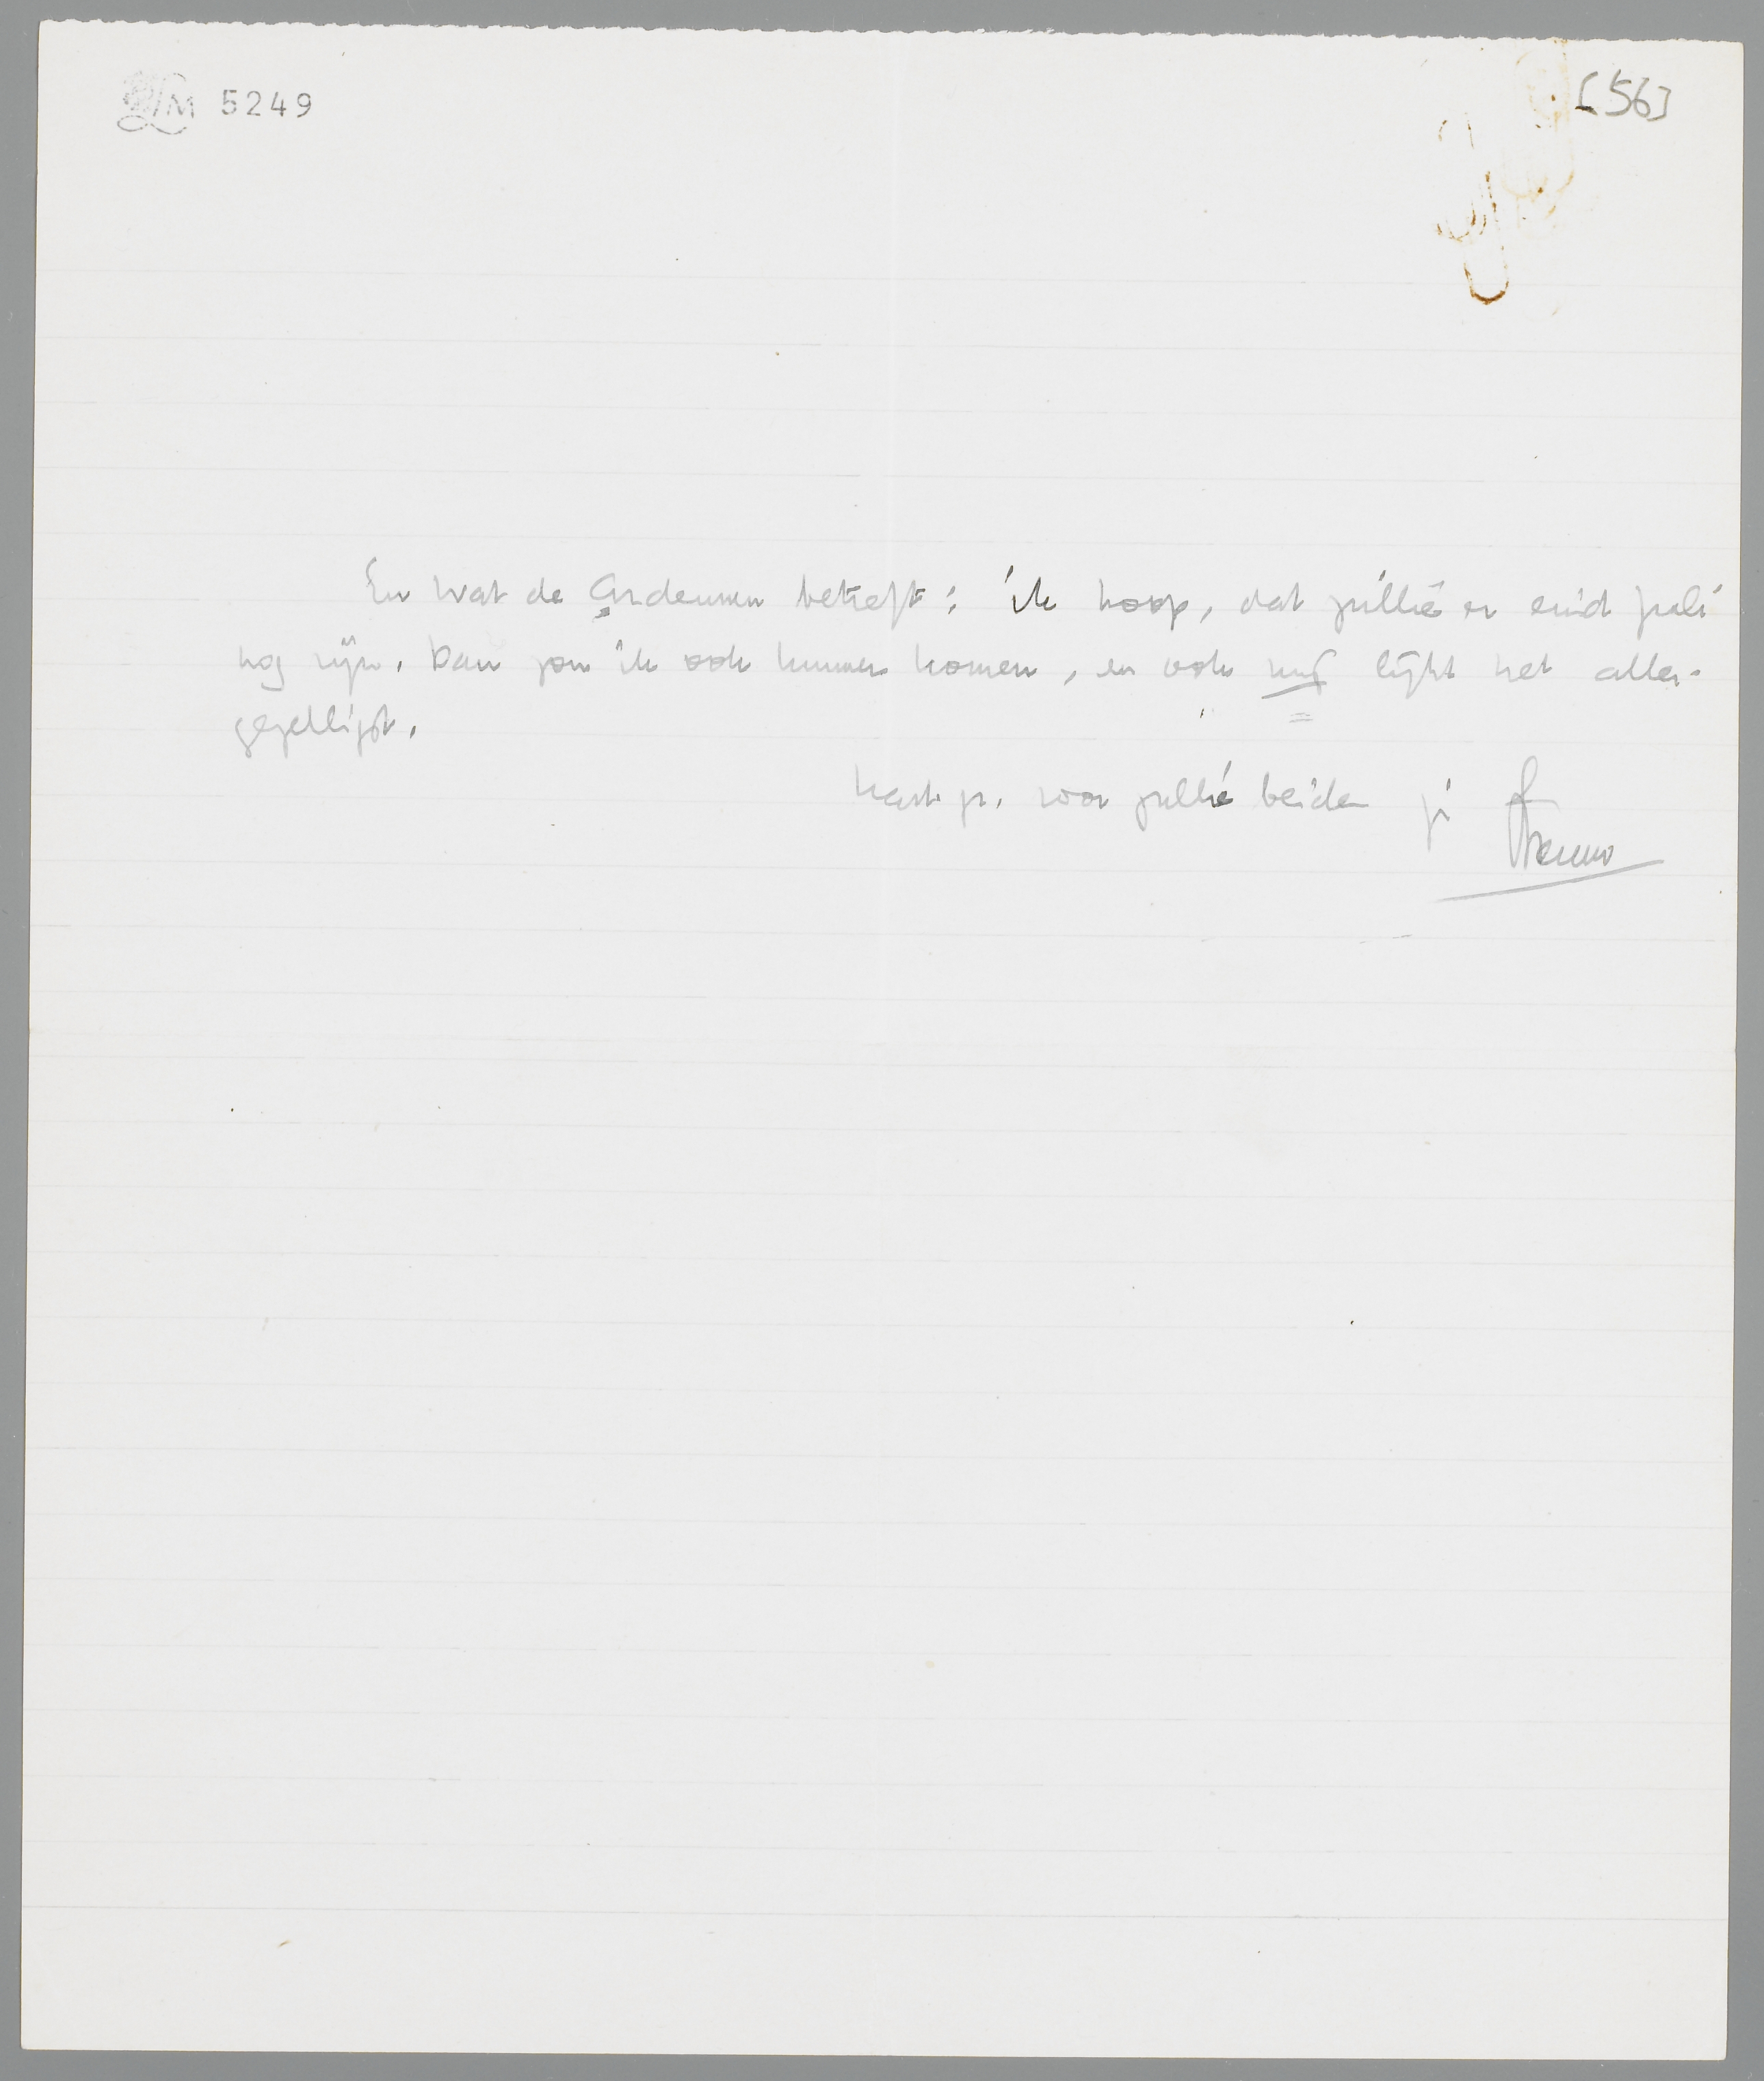 LM 5249
[56]
En wat de Ardennen betreft: ik hoop, dat jullie er eind Juli
nog zijn. Dan zou ik ook kunnen komen, en ook mij lijkt het aller-
gezelligst.
hart. gr. voor jullie beiden je
Menno